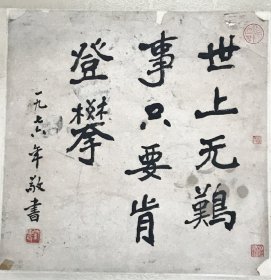 世上无難
事只要肯
登攀
一九七六年敬書